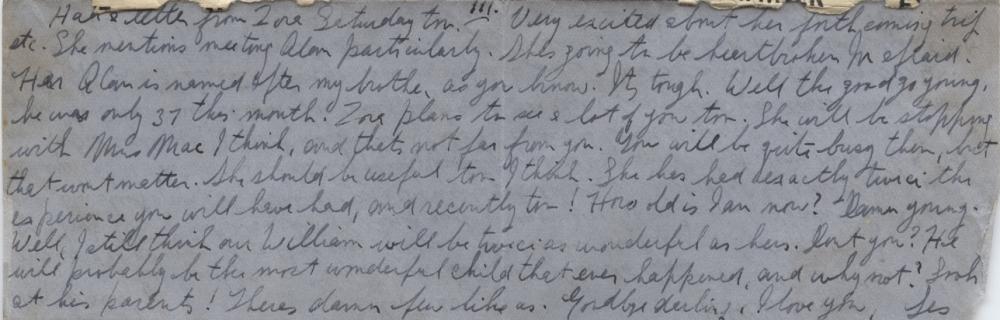 III.
Had a letter from Zora Saturday too. Very excited about her forthcoming trip
etc. She mentions meeting Alan particularly. Shes going to be heartbroken Im afraid.
Her Alan is named after my brother, as you know. Its tough. Well the good go young.
he was only 37 this month! Zora plans to see a lot of you too. She will be stopping
with Mrs Mac I think, and thats not far from you. You will be quite busy then, but
that wont matter. She should be useful too I think. She has had exactly twice the
experience you will have had, and recently too! How old is Ian now? Damn young.
Well, I still think our William will be twice as wonderful as hers. Dont you? He
will probably be the most wonderful child that ever happened, and why not? Look
at his parents! Theres damn few like us. Goodbye darling, I love you, Les